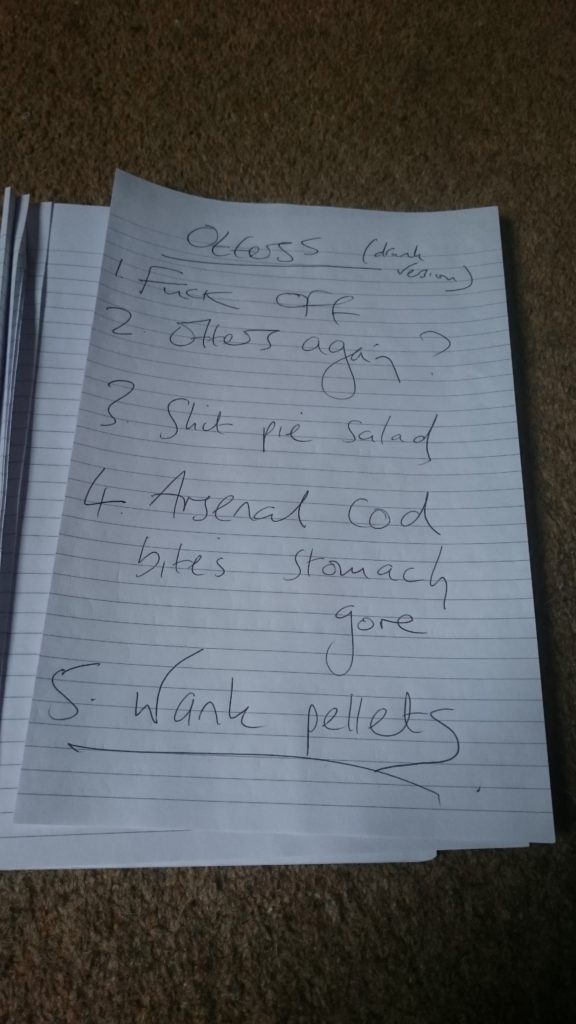 Otterss (drunk
version)
1. Fuck off
2. Otters again?
3. Shit pie salad
4. Arsenal cod
bites stomach
gore
5. Wank pellets